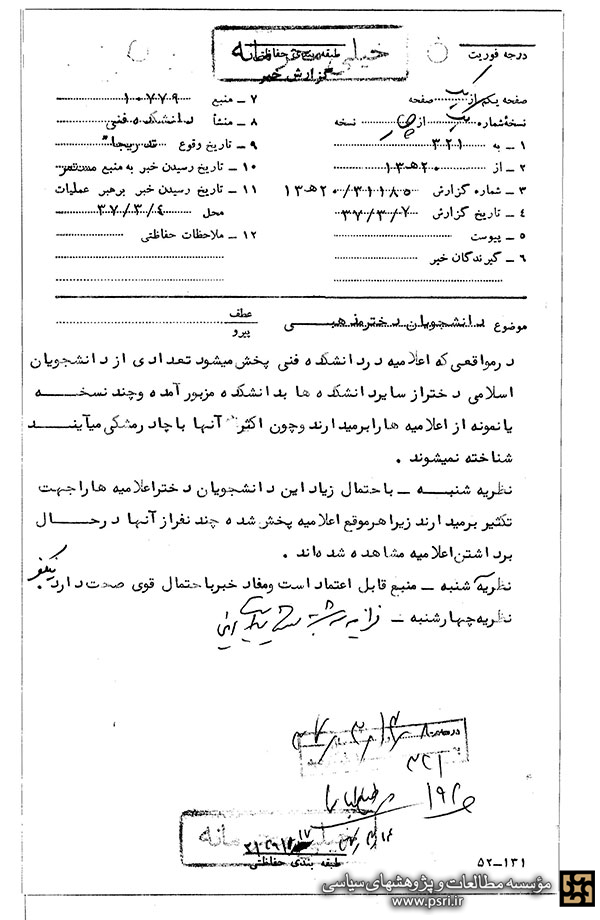 خیلی محرمانه
درجه فوریت
طبقه‌بندی حفاظتی
گزارش خبر
صفحه یکم از یک صفحه
نسخه شماره یک از چهار نسخه
۱ ـ به ۳۲۱
۲ ـ از ۲۰هـ۱۳
۳ ـ شماره گزارش ۳۱۱۸۵/۲۰هـ۱۳
۴ ـ تاریخ گزارش ۳۷/۳/۷
۵ ـ پیوست
۶ ـ گیرندگان خبر
۷ ـ منبع ۱۰۷۷۹
۸ ـ منشأ دانشکده فنی
۹ ـ تاریخ وقوع تدریجا"
۱۰ ـ تاریخ رسیدن خبر به منبع مستمر
۱۱ ـ تاریخ رسیدن خبر برهبر عملیات
محل ۳۷/۳/۴
۱۲ ـ ملاحظات حفاظتی
موضوع دانشجویان دختر مذهبی
عطف
پیرو
در مواقعی که اعلامیه در دانشکده فنی پخش میشود تعدادی از دانشجویان
اسلامی دختر از سایر دانشکده ها بدانشکده مزبور آمده و چند نسخه
یا نمونه از اعلامیه ها را برمیدارند و چون اکثر آنها با چادر مشکی میآیند
شناخته نمیشوند .
نظریه شنبه ـ با احتمال زیاد این دانشجویان دختر اعلامیه ها را جهت
تکثیر برمیدارند زیرا هر موقع اعلامیه پخش شده چند نفر از آنها در حال
برداشتن اعلامیه مشاهده شده‌اند .
نظریه شنبه ـ منبع قابل اعتماد است و مفاد خبر با احتمال قوی صحت دارد نیکفر
نظریه چهارشنبه ـ
۳۲۱
خیلی محرمانه
طبقه بندی حفاظتی
۵۲ـ۱۳۱
مؤسسه مطالعات و پژوهشهای سیاسی
www.psri.ir